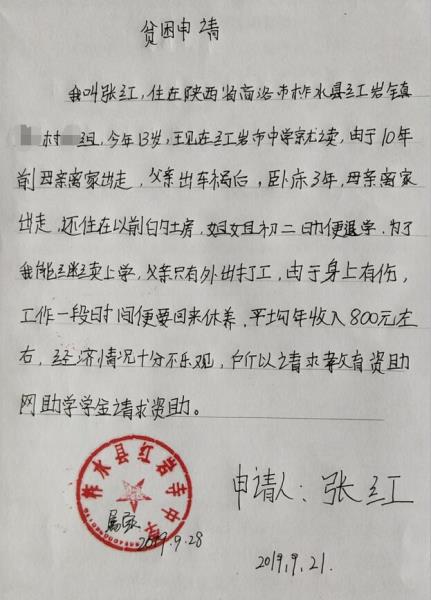 贫困申请
我叫张红，住在陕西省商洛市柞水县红岩镇
村 组，今年13岁，现在红岩市中学就读，由于10年
前母亲离家出走，父亲出车祸后，卧床3年，母亲离家
出走，还住在以前的土房，姐姐初二时便退学，为了
我能继续上学，父亲只有外出打工，由于身上有伤，
工作一段时间便要回来休养，平均年收入800元左
右，经济情况十分不乐观，所以请求教育资助
网助学学金请求资助。
柞水县红岩寺中学
属实
2019.9.28
申请人：张红
2019.9.21.